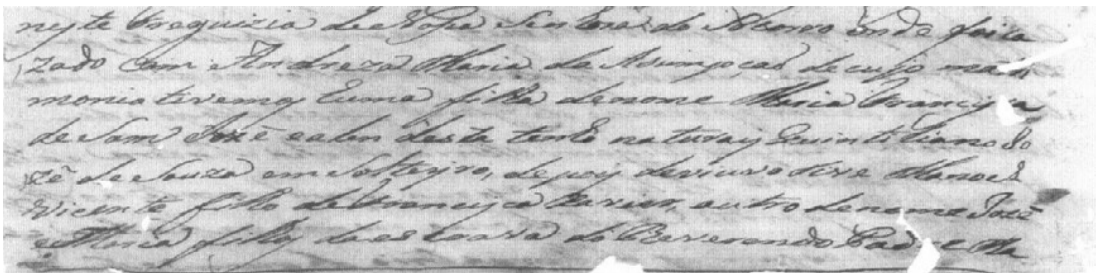 neste Freguizia de Nosa Senhora do Monte onde fui ca
zado Com Andreza Maria de Asumpçaõ de cujo matri
monio tivemos huma filha de nome Maria Francisca
de Sam José e alem desta tenho naturais Quintiliano Jo
zé de Souza em Solteyro, depois de viuvo tive Manoel
Vicente filho de Francisca Xavier, outro de nome José
e Maria filhos da escrava do Reverendo Padre Ma